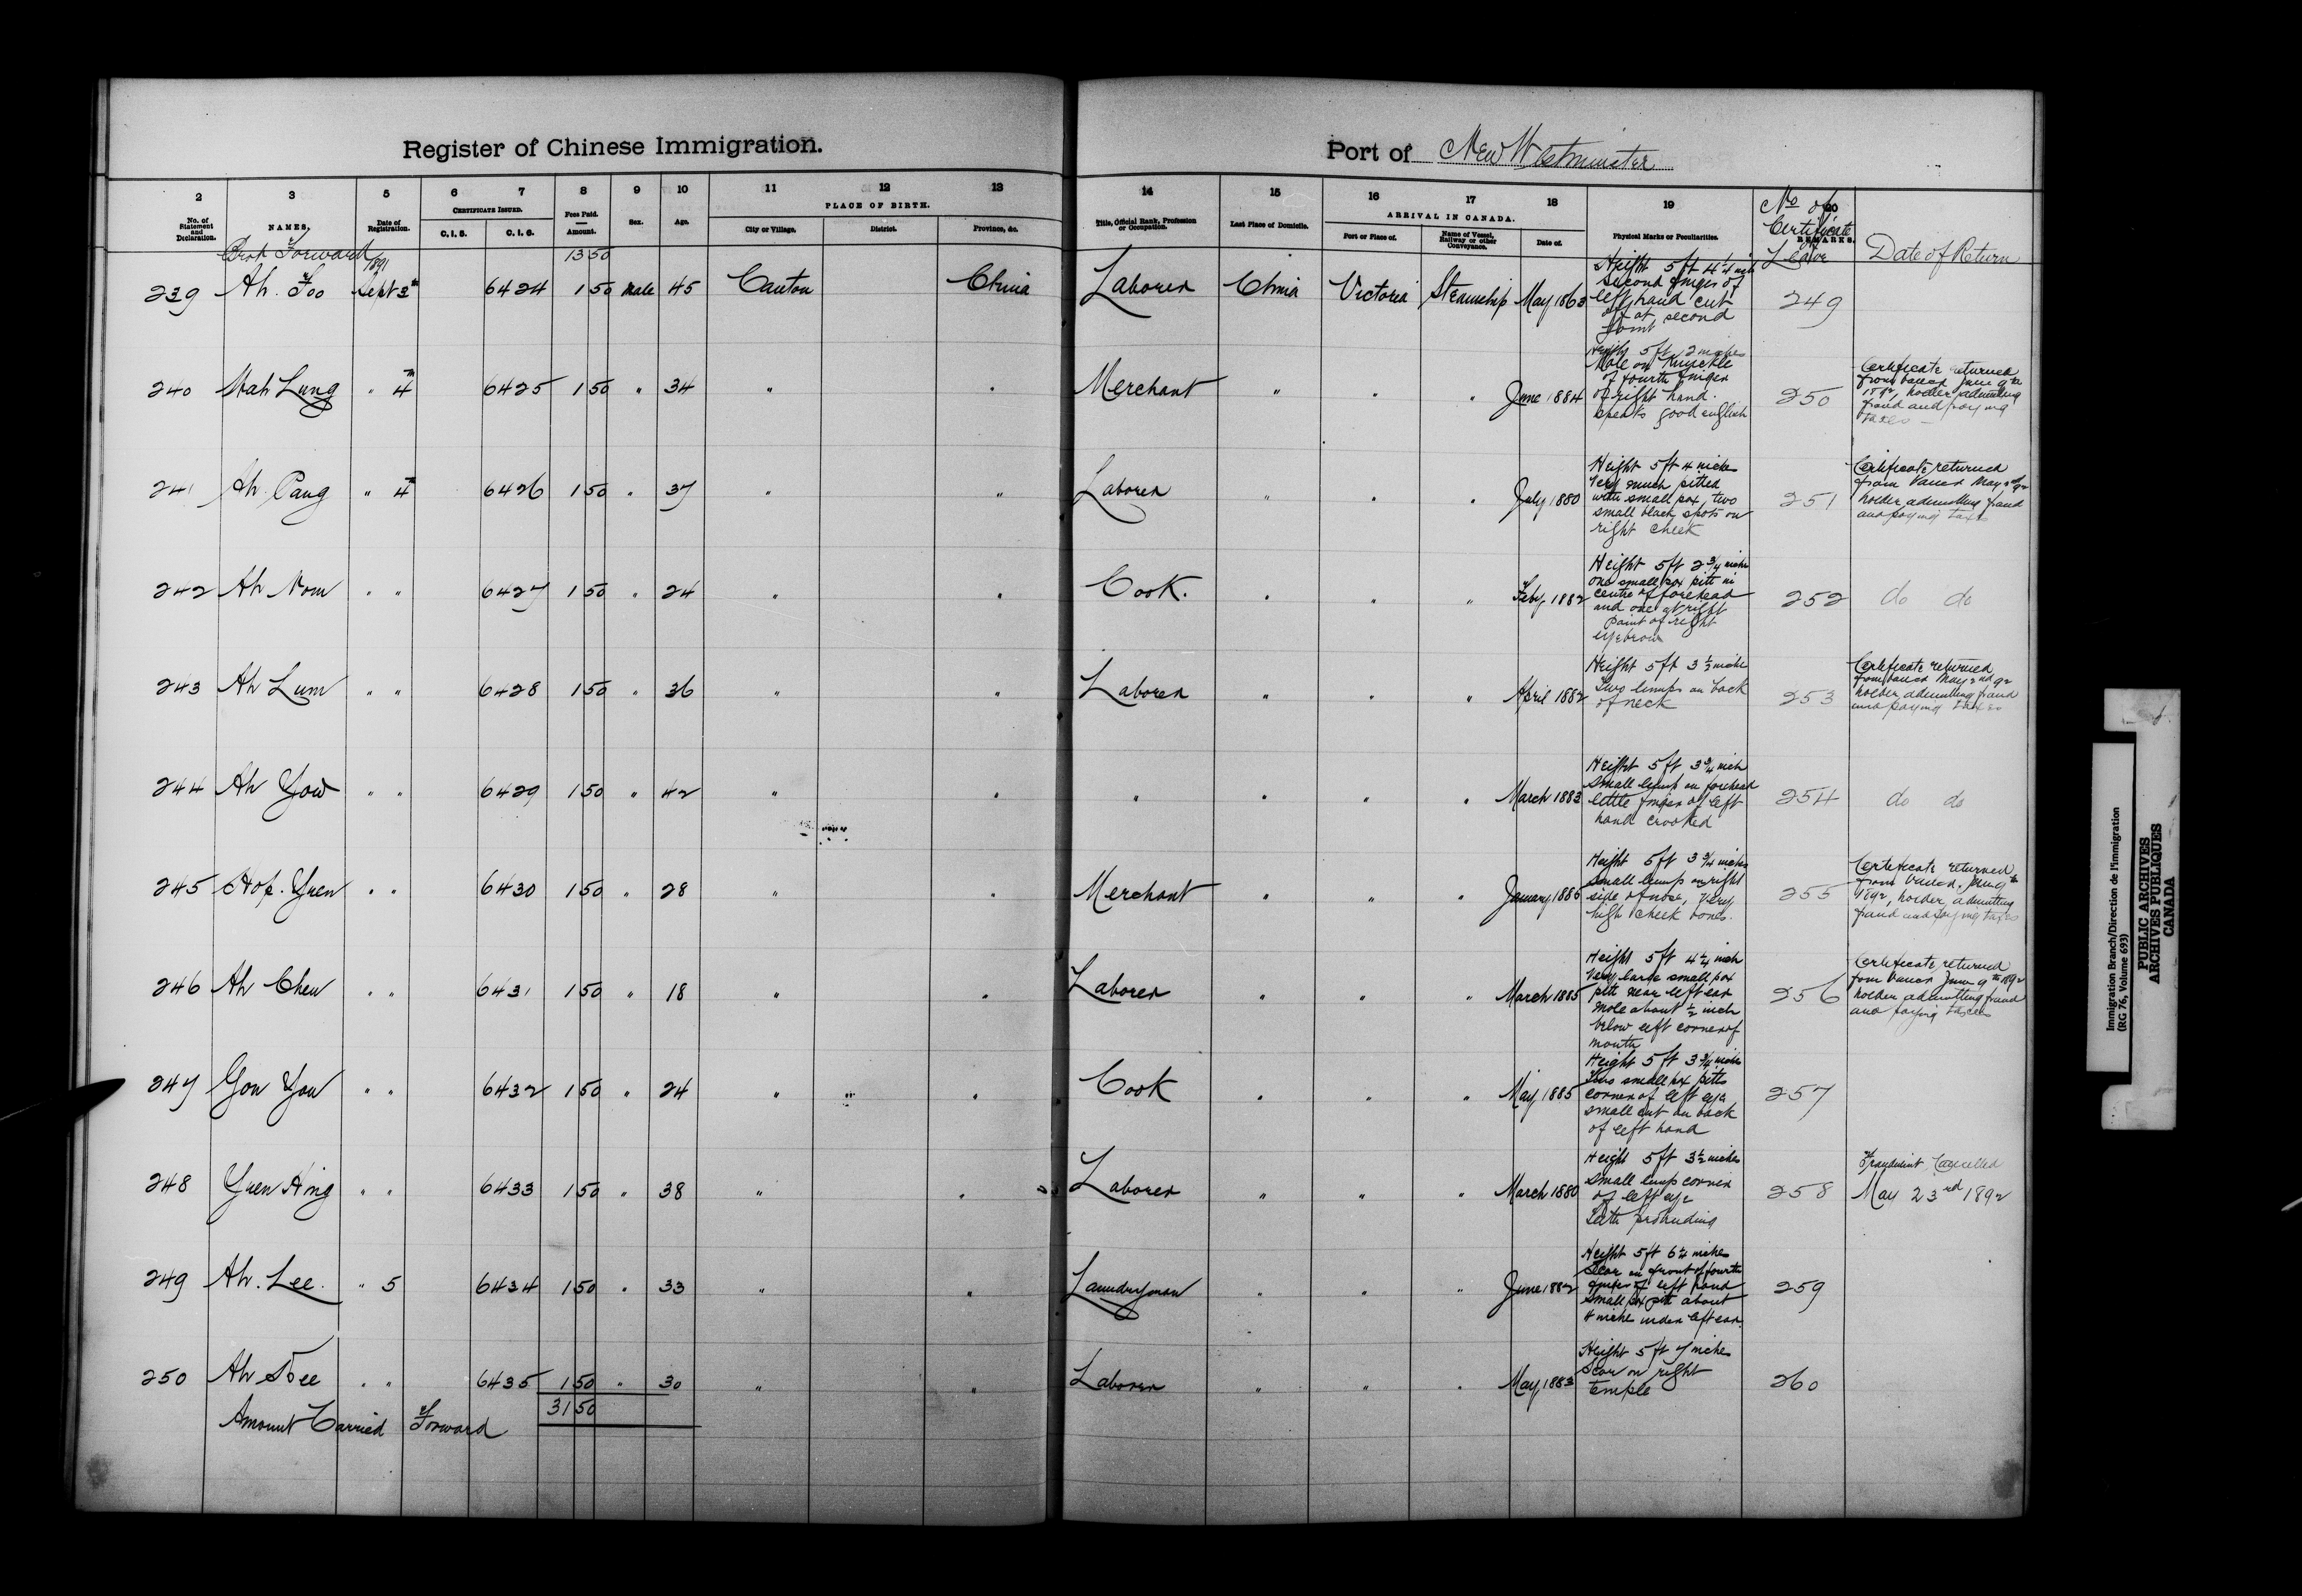 Register of Chinese Immigration.
Port of New Westminster
2 3 5 6 7 8 9 10 11 12 13
No. of Statement and Declaration. NAMES. Date of Registration. CERTIFICATE ISSUED. C.I.5. C.I.6. Fees Paid. Amount. Sex. Age. PLACE OF BIRTH. City or Village. District. Province, &c.
14 15 16 17 18 19 20
Title, Official Rank, Profession or Occupation. Last Place of Domicile. ARRIVAL IN CANADA. Port or Place of. Name of Vessel, Railway or other Conveyance. Date of. Physical Marks or Peculiarities. REMARKS.
No of Certificate of Leave Date of Return
Brot Forward 1891 13 50
239 Ah. Foo Sept 3rd 6424 1 50 Male 45 Canton China Laborer China Victoria Steamship May 1863
Height 5 ft 4 1/4 inch
Second finger of
left hand cut
off at second
joint
249
240 Mah Lung " 4th 6425 1 50 " 34 " " Merchant " " " June 1884
Height 5 ft 2 inches
Mole on Knuckle
of fourth finger
of right hand.
speaks good english
250
Certificate returned
from Vancr June 9th
1892, holder admitting
fraud and paying
taxes
241 Ah. Pang " 4th 6426 1 50 " 37 " " Laborer " " " July 1880
Height 5 ft 4 inches
Very much pitted
with small pox, two
small black spots on
right cheek
251
Certificate returned
from Vancr May 2nd 92
holder admitting fraud
and paying taxes
242 Ah Nom " " 6427 1 50 " 24 " " Cook. " " " Feby 1882
Height 5 ft 2 3/4 inche
one small pox pitt in
centre of forehead
and one at right
point of right
eyebrow
252 do do
243 Ah Lum " " 6428 1 50 " 36 " " Laborer " " " April 1882
Height 5 ft 3 1/2 inche
Two lumps on back
of neck
253
Certificate returned
from Vancr May 2nd 92
holder admitting fraud
and paying taxes
244 Ah Yow " " 6429 1 50 " 42 " " " " " " March 1883
Height 5 ft 3 3/4 inch
Small lump on forehead
little finger of left
hand crooked
254 do do
245 Hop. Yuen " " 6430 1 50 " 28 " " Merchant " " " January 1886
Height 5 ft 3 3/4 inches
small lump on right
side of nose, very
high cheek bones.
255
Certificate returned
from Vancr. June 9th
1892, holder admitting
fraud and paying taxes
246 Ah Chew " " 6431 1 50 " 18 " " Laborer " " " March 1885
Height 5 ft 4 1/4 inch
Very large small pox
pitt near left ear
mole about 1/2 inch
below left corner of
mouth
256
Certificate returned
from Vancr June 9th 1892
holder admitting fraud
and paying taxes
247 Gou You " " 6432 1 50 " 24 " " " Cook " " " May 1885
Height 5 ft 3 3/4 inche
Two small pox pitts
corner of left eye
small cut on back
of left hand
257
248 Yuen Hing " " 6433 1 50 " 38 " " Laborer " " " March 1880
Height 5 ft 3 1/2 inches
Small lump corner
of left eye
Teeth protruding
258
Fraudulent Cancelled
May 23rd 1892
249 Ah. Lee. " 5 6434 1 50 " 33 " " Laundryman " " " June 1882
Height 5 ft 6 1/4 inches
Scar on front of fourth
finger of left hand
small pox pitt about
4 inche under left ear.
259
250 Ah See " " 6435 1 50 " 30 " " Laborer " " " May 1883
Height 5 ft 7 inches
Scar on right
temple
260
31 50
Amount Carried Forward
Immigration Branch/Direction de l'immigration
(RG 76, Volume 693)
PUBLIC ARCHIVES
ARCHIVES PUBLIQUES
CANADA